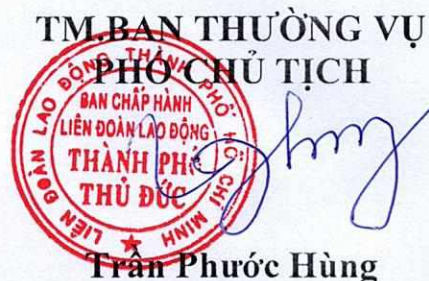 TM.BAN THƯỜNG VỤ
PHÓ CHỦ TỊCH
LIÊN ĐOÀN LAO ĐỘNG THÀNH PHỐ HỒ CHÍ MINH
BAN CHẤP HÀNH
LIÊN ĐOÀN LAO ĐỘNG
THÀNH PHỐ
THỦ ĐỨC
Trần Phước Hùng